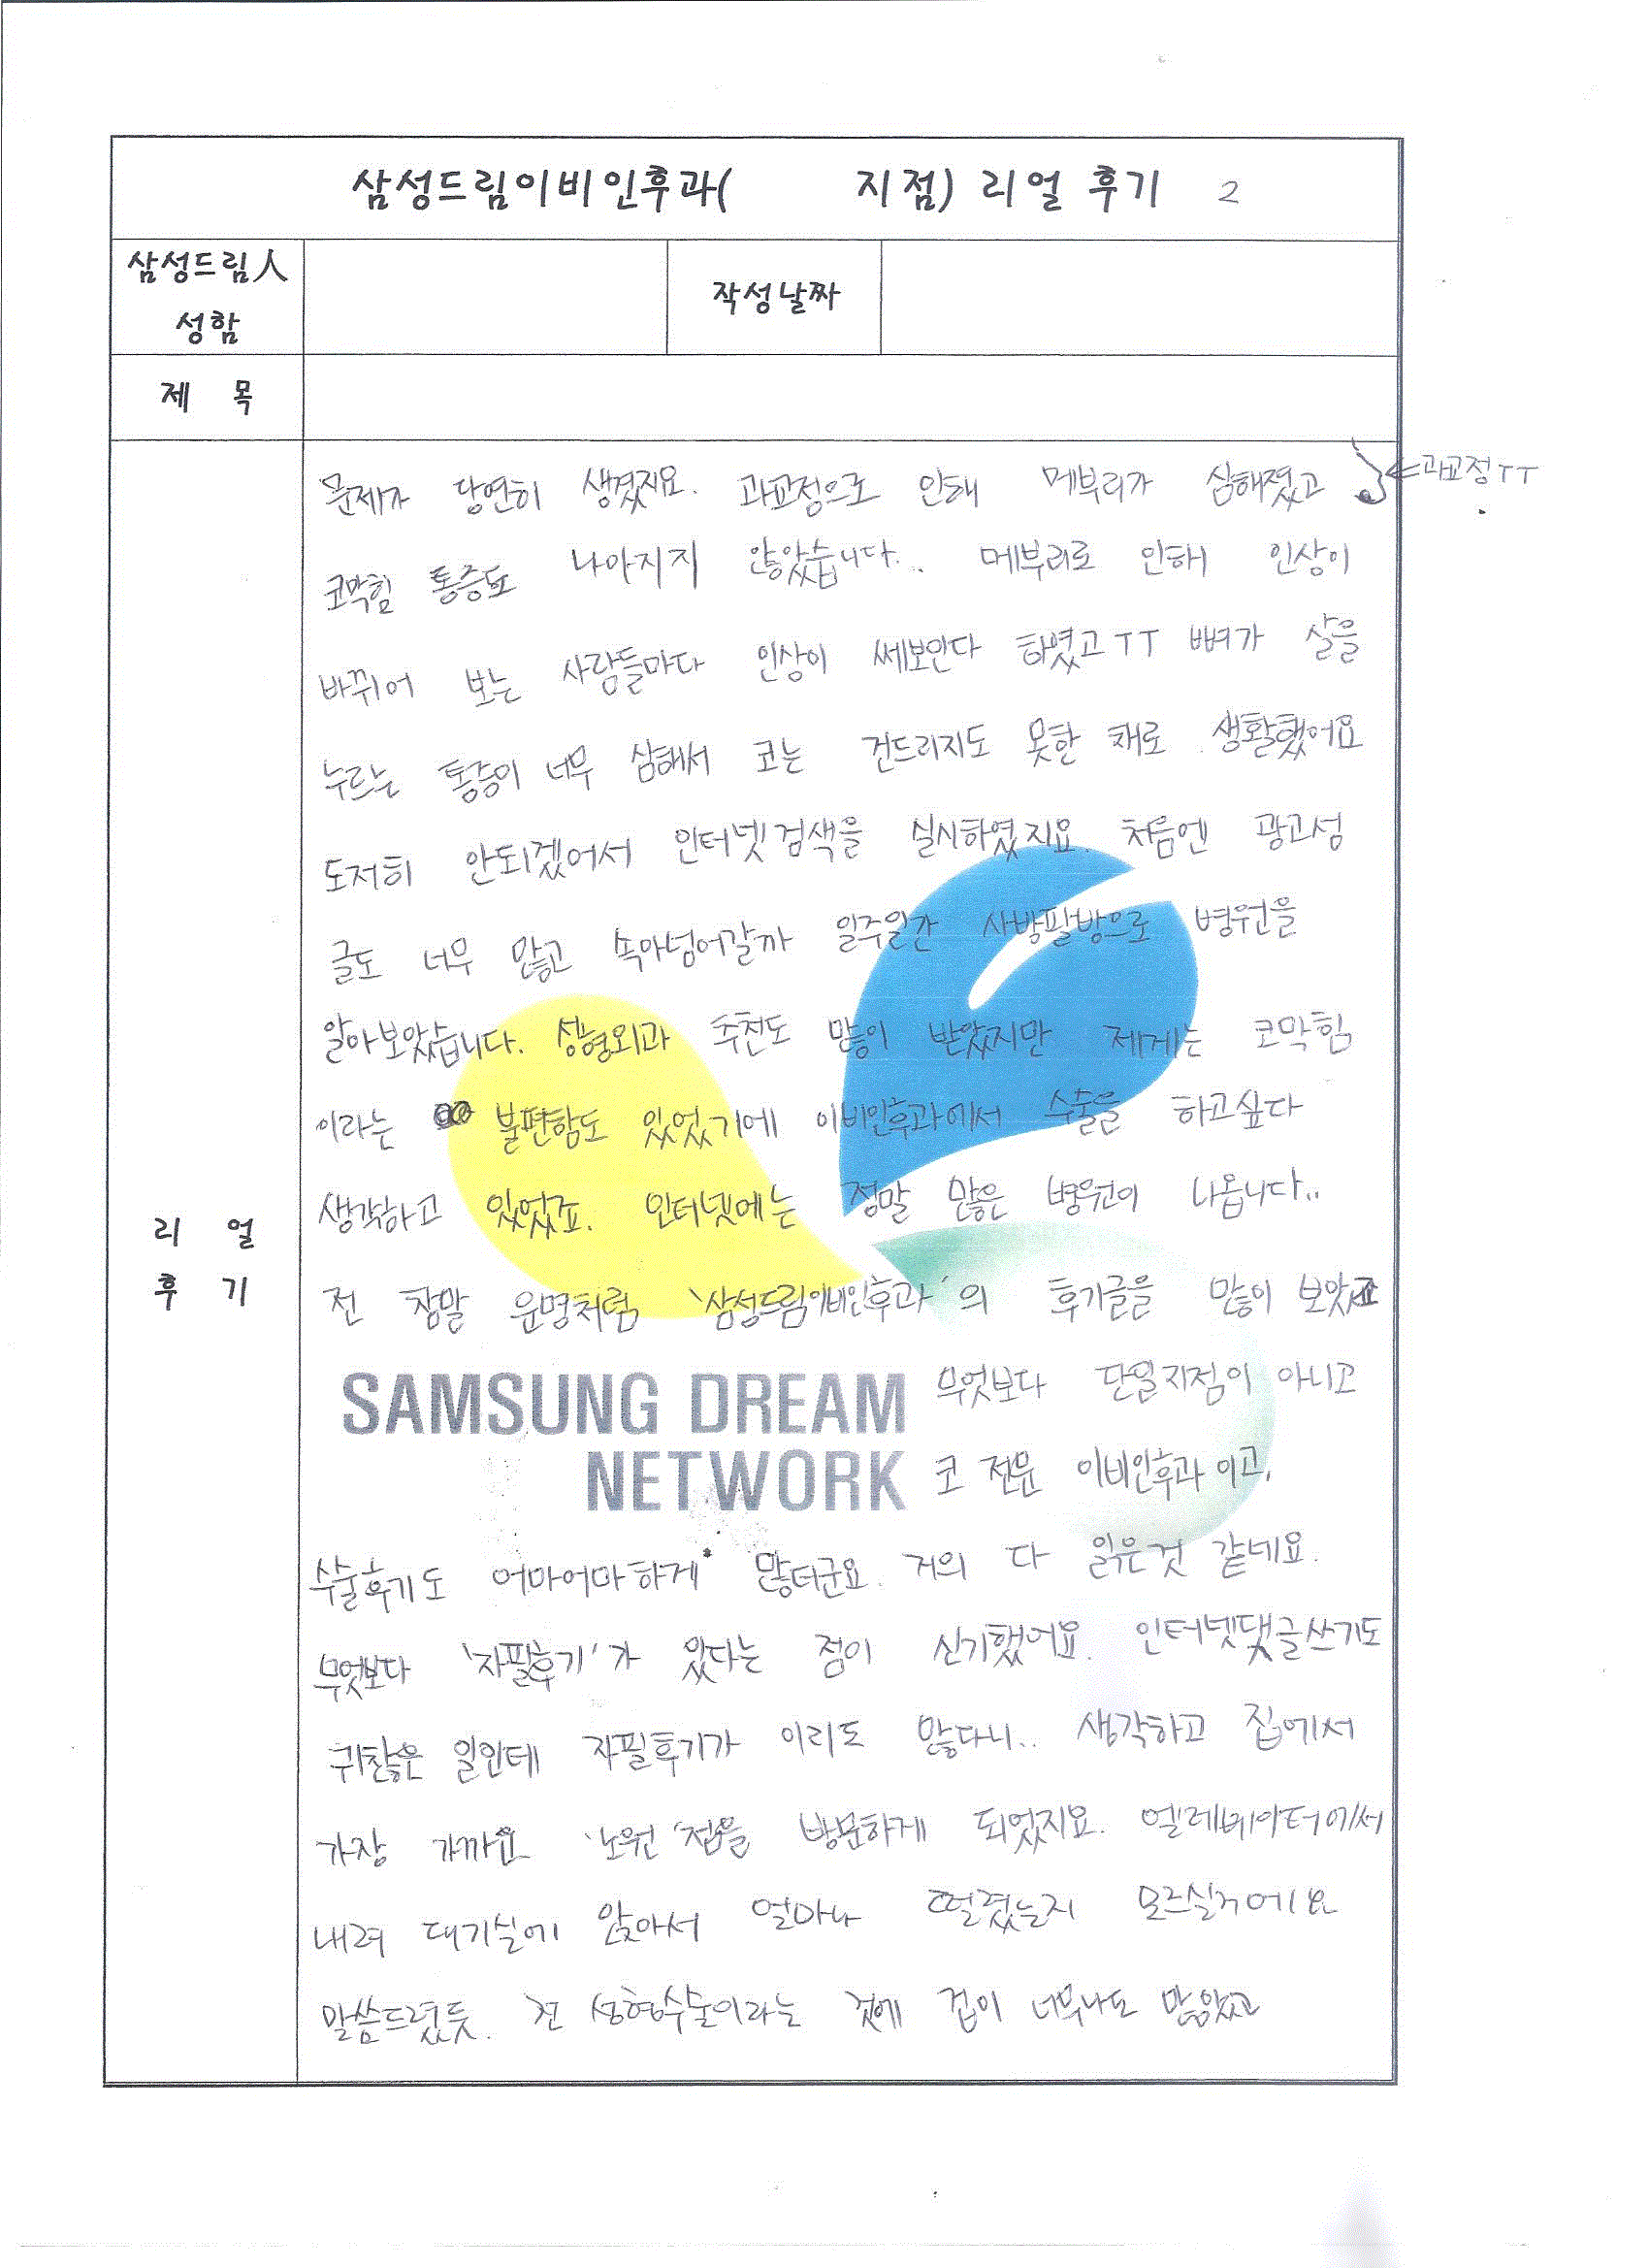 삼성드림이비인후과( 지점) 리얼 후기 2
삼성드림人
성함
작성날짜
제 목
문제가 당연히 생겼지요. 과교정으로 인해 메부리가 심해졌고 ←과교정TT
코막힘 통증도 나아지지 않았습니다.. 메부리로 인해 인상이
바뀌어 보는 사람들마다 인상이 쎄보인다 하였고TT 뼈가 살을
누르는 통증이 너무 심해서 코는 건드리지도 못한 채로 생활했어요
도저히 안되겠어서 인터넷검색을 실시하였지요. 처음엔 광고성
글도 너무 많고 속아넘어갈까 일주일간 사방팔방으로 병원을
알아보았습니다. 성형외과 추천도 많이 받았지만 제게는 코막힘
이라는 불편함도 있었기에 이비인후과에서 수술을 하고싶다
생각하고 있었죠. 인터넷에는 정말 많은 병원이 나옵니다..
전 정말 운명처럼 '삼성드림이비인후과'의 후기글을 많이 보았죠
SAMSUNG DREAM
NETWORK
무엇보다 단일지점이 아니고
코 전문 이비인후과 이고,
리 얼
후 기
수술후기도 어마어마하게 많더군요. 거의 다 읽은것 같네요.
무엇보다 '자필후기'가 있다는 점이 신기했어요. 인터넷댓글쓰기도
귀찮은 일인데 자필후기가 이리도 많다니.. 생각하고 집에서
가장 가까운 '노원'점을 방문하게 되었지요. 엘레베이터에서
내려 대기실에 앉아서 얼마나 떨렸는지 모르실거에요
말씀드렸듯. 전 성형수술이라는 것에 겁이 너무나도 많았고